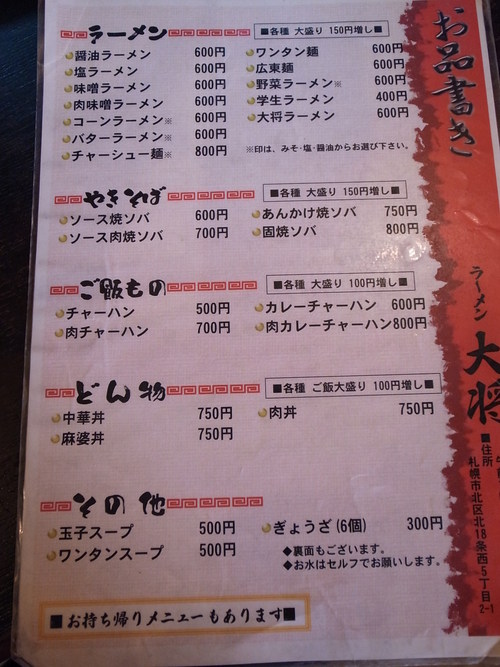 お品書き
ラーメン
■各種 大盛り 150円増し■
醤油ラーメン 600円
塩ラーメン 600円
味噌ラーメン 600円
肉味噌ラーメン 600円
コーンラーメン※ 600円
バターラーメン※ 600円
チャーシュー麺※ 800円
ワンタン麺 600円
広東麺 600円
野菜ラーメン※ 600円
学生ラーメン 400円
大将ラーメン 600円
※印は、みそ・塩・醤油からお選び下さい。
やきそば
■各種 大盛り 150円増し■
ソース焼ソバ 600円
ソース肉焼ソバ 700円
あんかけ焼ソバ 750円
固焼ソバ 800円
ご飯もの
■各種 大盛り 100円増し■
チャーハン 500円
肉チャーハン 700円
カレーチャーハン 600円
肉カレーチャーハン 800円
どん物
■各種 ご飯大盛り 100円増し■
中華丼 750円
麻婆丼 750円
肉丼 750円
その他
玉子スープ 500円
ワンタンスープ 500円
ぎょうざ(6個) 300円
◆裏面もございます。
◆お水はセルフでお願いします。
■お持ち帰りメニューもあります■
ラーメン 大将
■住所
札幌市北区北18条西5丁目2-1